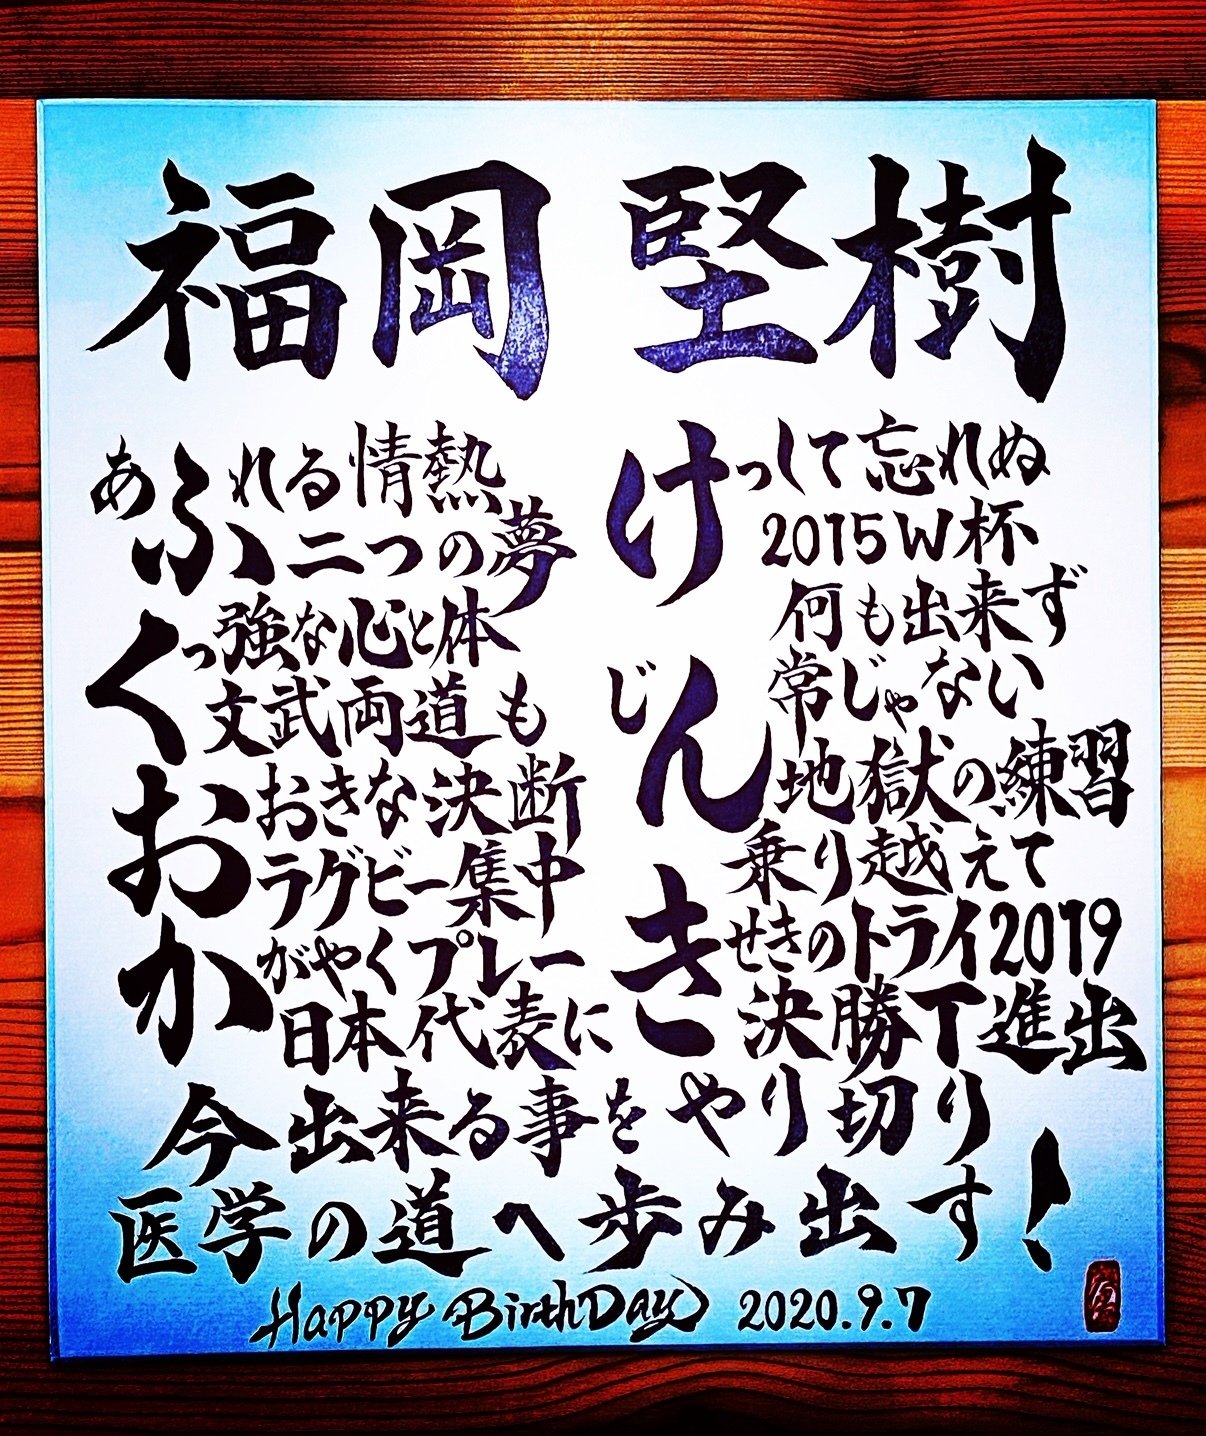 福岡 堅樹
あふれる情熱
二つの夢
くっ強な心と体
文武両道も
おおきな決断
ラグビー集中
かがやくプレー
日本代表に
けっして忘れぬ
2015W杯
何も出来ず
じん常じゃない
地獄の練習
乗り越えて
きせきのトライ2019
決勝T進出
今出来る事をやり切り
医学の道へ歩み出す!
Happy BirthDay 2020.9.7